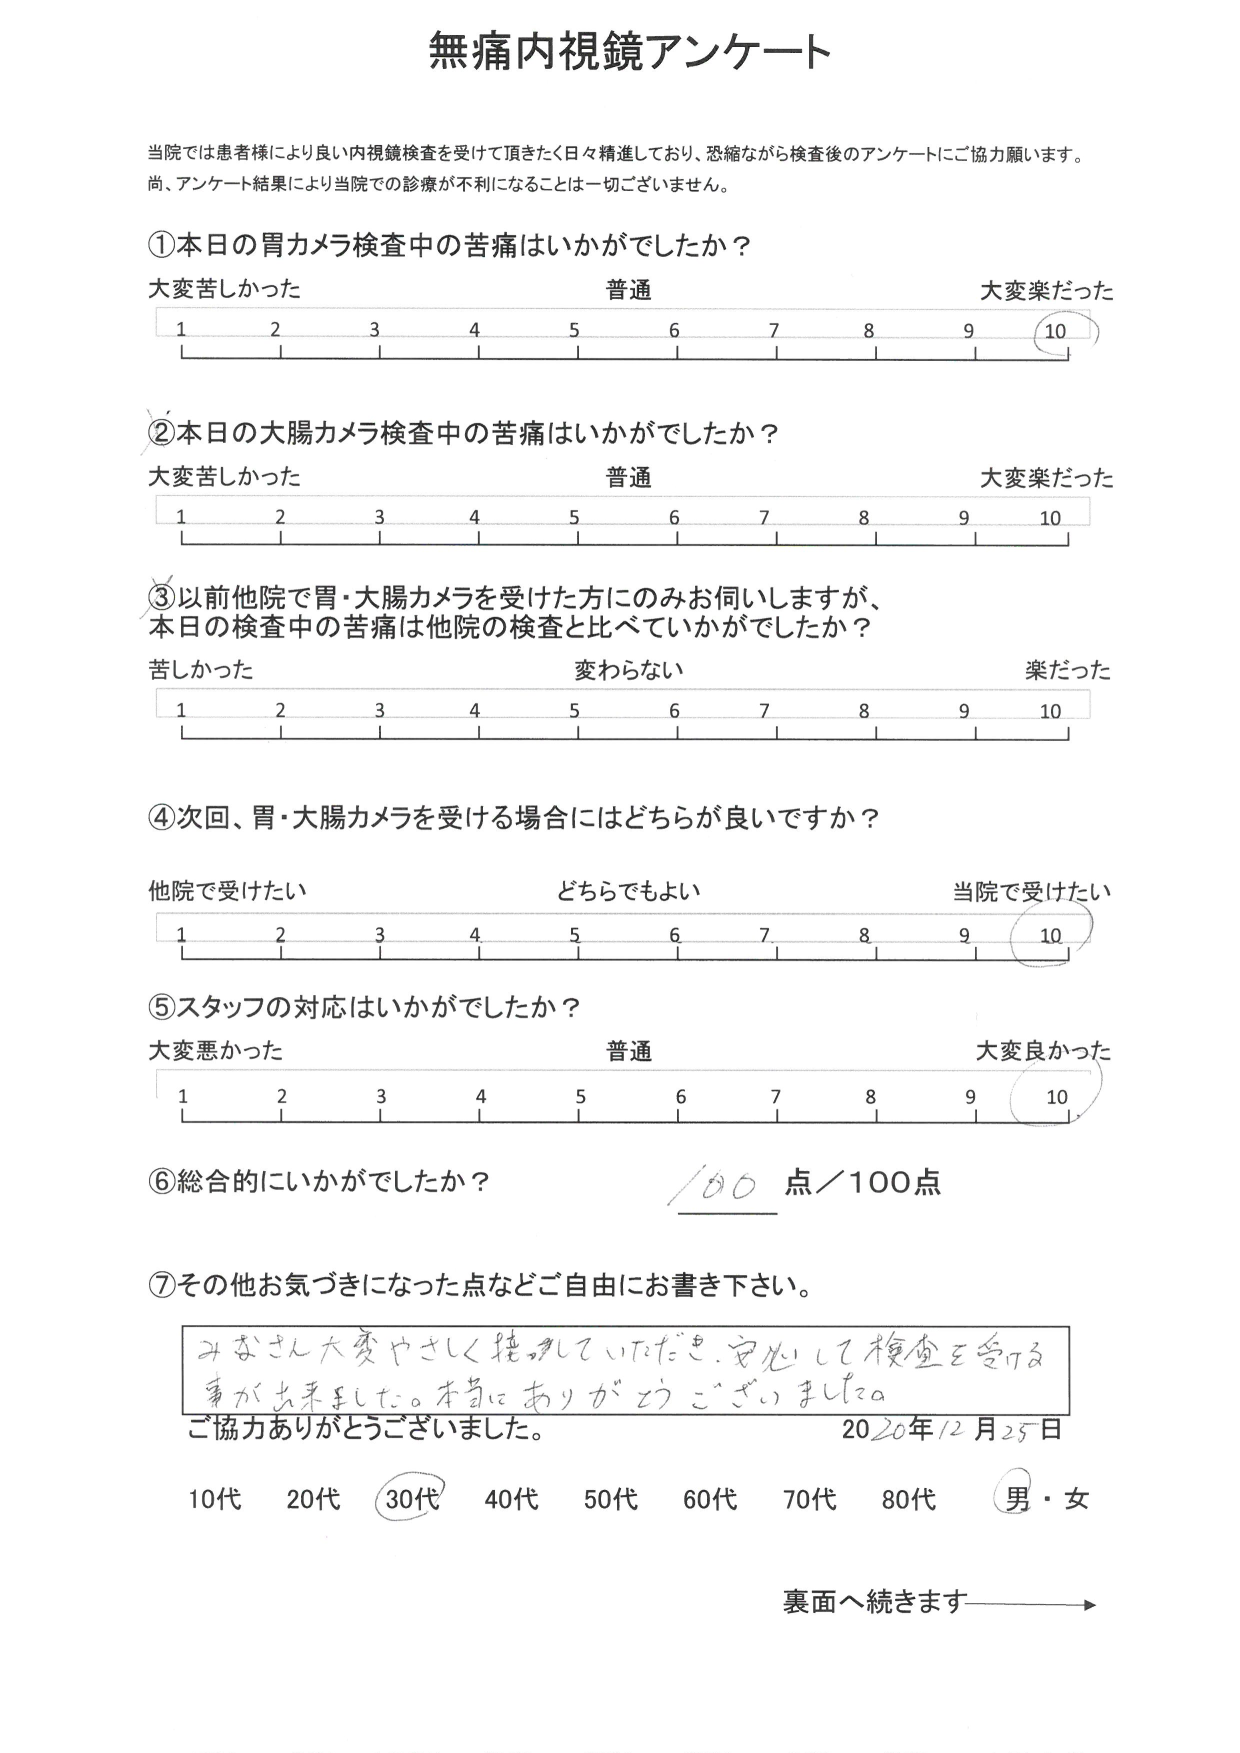 無痛内視鏡アンケート
当院では患者様により良い内視鏡検査を受けて頂きたく日々精進しており、恐縮ながら検査後のアンケートにご協力願います。
尚、アンケート結果により当院での診療が不利になることは一切ございません。
①本日の胃カメラ検査中の苦痛はいかがでしたか？
大変苦しかった 普通 大変楽だった
1 2 3 4 5 6 7 8 9 10
②本日の大腸カメラ検査中の苦痛はいかがでしたか？
大変苦しかった 普通 大変楽だった
1 2 3 4 5 6 7 8 9 10
③以前他院で胃・大腸カメラを受けた方にのみお伺いしますが、
本日の検査中の苦痛は他院の検査と比べていかがでしたか？
苦しかった 変わらない 楽だった
1 2 3 4 5 6 7 8 9 10
④次回、胃・大腸カメラを受ける場合にはどちらが良いですか？
他院で受けたい どちらでもよい 当院で受けたい
1 2 3 4 5 6 7 8 9 10
⑤スタッフの対応はいかがでしたか？
大変悪かった 普通 大変良かった
1 2 3 4 5 6 7 8 9 10
⑥総合的にいかがでしたか？ 100 点／100点
⑦その他お気づきになった点などご自由にお書き下さい。
みなさん大変やさしく接していただき、安心して検査を受ける
事が出来ました。本当にありがとうございました。
ご協力ありがとうございました。 2020年12月25日
10代 20代 30代 40代 50代 60代 70代 80代 男・女
裏面へ続きます